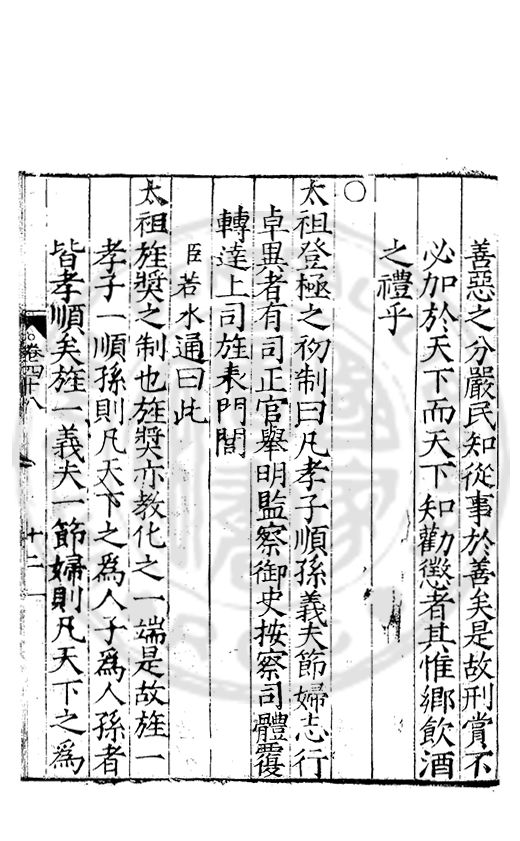 善惡之分嚴民知從事於善矣是故刑賞不
必加於天下而天下知勸懲者其惟鄉飲酒
之禮乎
〇
太祖登極之初制曰凡孝子順孫義夫節婦志行
卓異者有司正官舉明監察御史按察司體覆
轉達上司旌表門閭
臣若水通曰此
太祖旌奬之制也旌奬亦教化之一端是故旌一
孝子一順孫則凡天下之為人子為人孫者
皆孝順矣旌一義夫一節婦則凡天下之為
卷四十八
十二